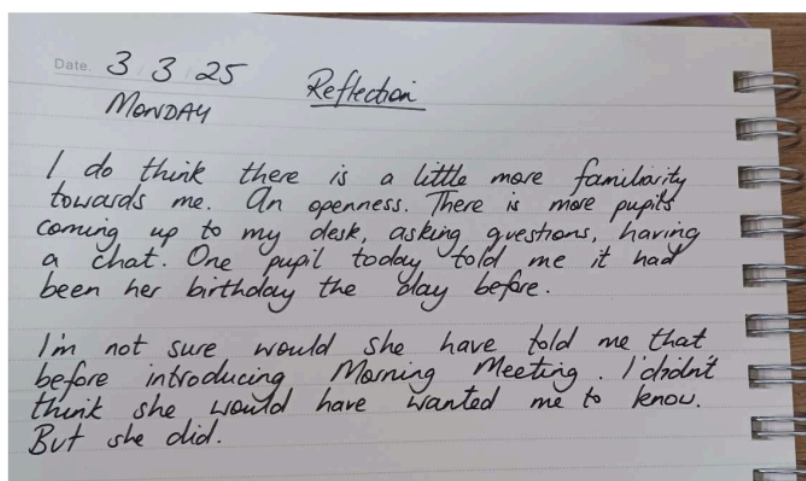 Date. 3 3 25
Reflection
MONDAY
I do think there is a little more familiarity
towards me. An openness. There is more pupils
coming up to my desk, asking questions, having
a chat. One pupil today told me it had
been her birthday the day before.
I'm not sure would she have told me that
before introducing Morning Meeting. I didn't
think she would have wanted me to know.
But she did.